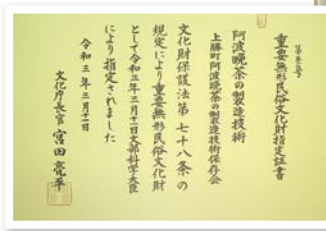 重要無形民俗文化財指定証書
阿波晩茶の製造技術
上勝町阿波晩茶の製造技術保存会
文化財保護法第七十八条の
規定により重要無形民俗文化財
として令和三年三月十一日文部科学大臣
により指定されました
令和三年三月十一日
文化庁長官 宮田亮平